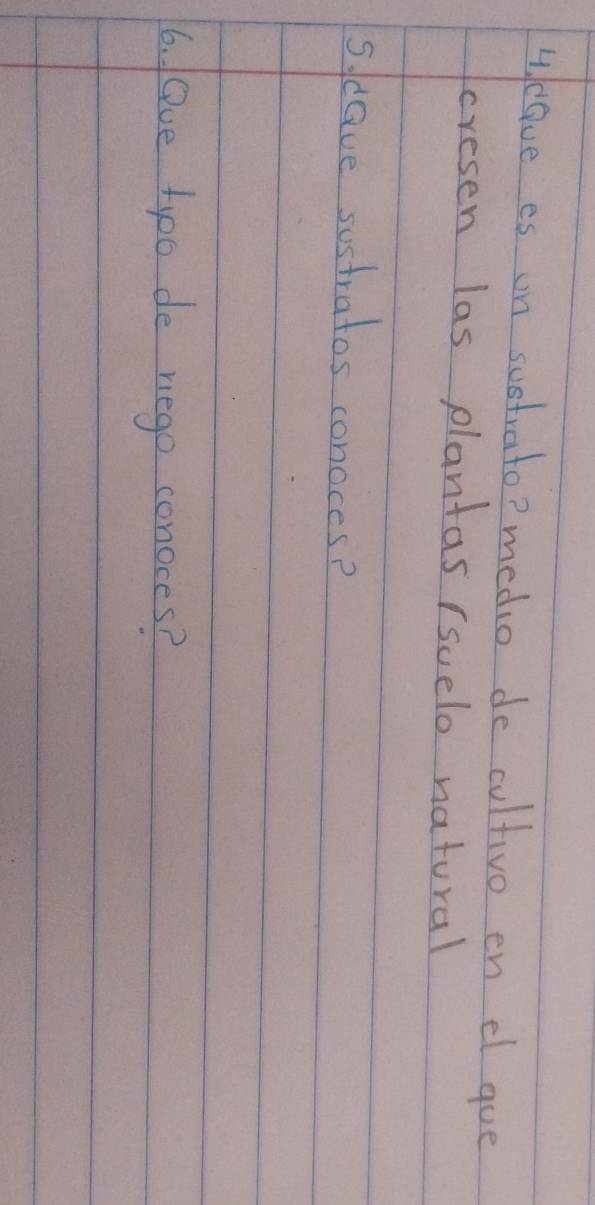 4.¿Que es un sustrato? medio de cultivo en el que
cresen las plantas (suelo natural
5.¿Que sustratos conoces?
6.- Que typo de riego conoces?